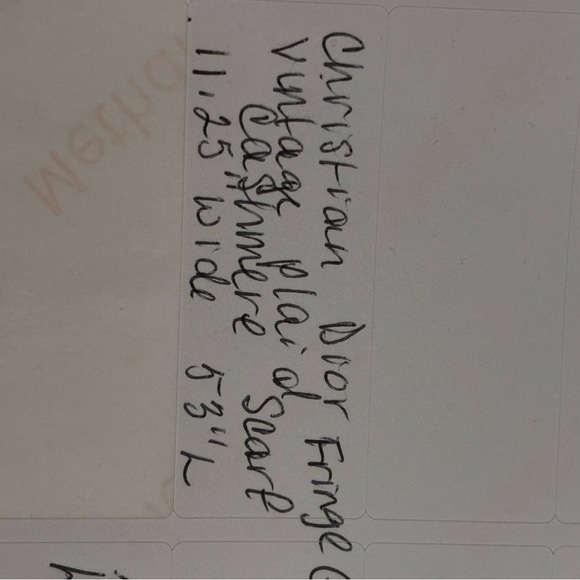 Christian Dior Fringe
Vintage plaid
Cashmere Scarf
11.25" wide 53"L